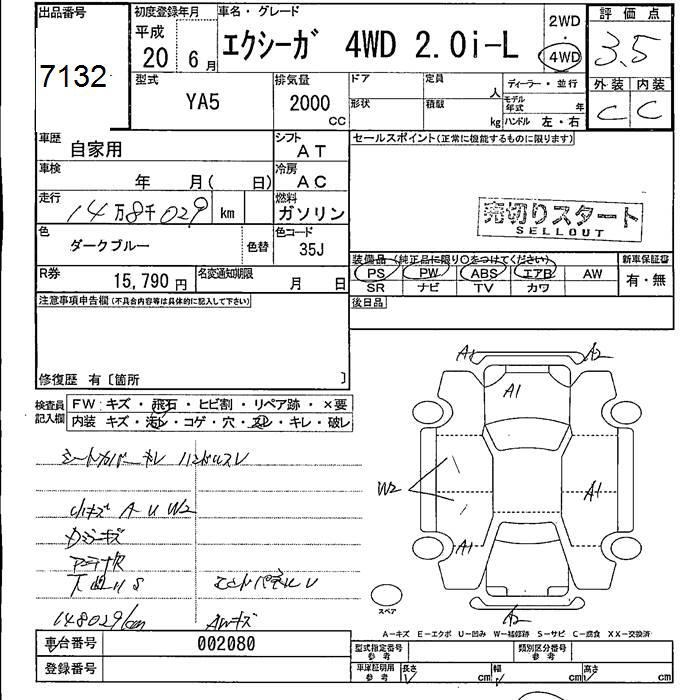 出品番号
7132
初度登録年月
平成
20 6月
車名・グレード
エクシーガ 4WD 2.0i-L
2WD
・
4WD
評価点
3.5
外装 内装
C C
型式
YA5
排気量
2000
CC
ドア
定員
人
形状
積載
kg
ディーラー・並行
モデル年式 年
ハンドル 左・右
車歴
自家用
シフト
AT
車検
年 月( 日)
冷房
AC
走行
14万8千029 km
燃料
ガソリン
色
ダークブルー
色替
色コード
35J
R券
15,790円
名変通知期限
月 日
セールスポイント(正常に機能するものに限ります)
売切りスタート
SELLOUT
装備品(純正品に限り○をつけてください)
PS PW ABS エアB AW
SR ナビ TV カワ
新車保証書
有・無
後日品
注意事項申告欄(不具合内容等は具体的に記入して下さい)
修復歴 有〔箇所 〕
検査員
記入欄
FW:キズ・飛石・ヒビ割・リペア跡・×要
内装:キズ・汚レ・コゲ・穴・スレ・キレ・破レ
シートカバーキレ ハンドルスレ
小キズ A U W2
アンテナ欠
下廻り S
エンドパネル U
148029km
AWキズ
A1
A2
A1
W2
A1
A1
A2
スペア
A-キズ E-エクボ U-凹み W-補修跡 S-サビ C-腐食 XX-交換済
車台番号
002080
登録番号
型式指定番号
参考
類別区分番号
参考
車庫証明用
参考
長さ cm
幅 cm
高さ cm